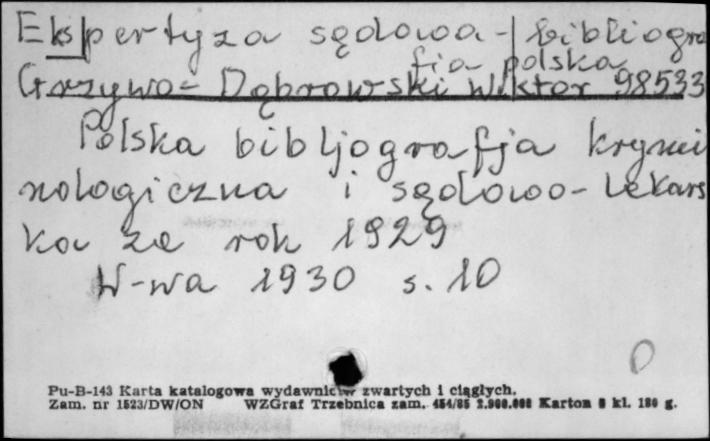 Ekspertyza sądowa - bibliogra
fia polska
Grzywo-Dąbrowski Wiktor 98533
Polska bibljografja krymi
nologiczna i sądowo-lekars
ka za rok 1929
W-wa 1930 s. 10
Pu-B-143 Karta katalogowa wydawnictw zwartych i ciągłych.
Zam. nr 1523/DW/ON WZGraf Trzebnica zam. 454/85 2.900.000 Karton kl. 180 g.